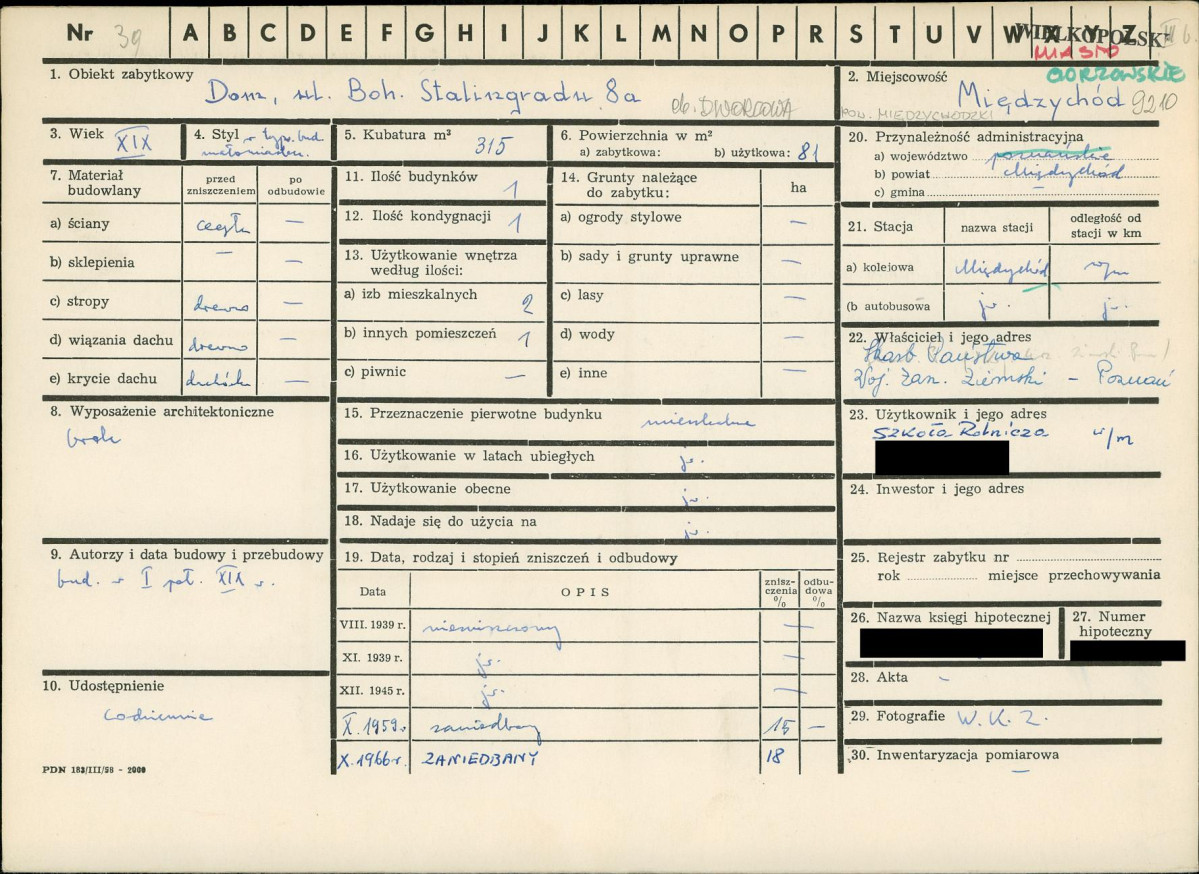 Nr 39 A B C D E F G H I J K L M N O P R S T U V W X Y Z
WIELKOPOLSKI
MIASTO
GORZOWSKIE
1. Obiekt zabytkowy
Dom, ul. Boh. Stalingradu 8a
ob. DWORCOWA
2. Miejscowość
Międzychód 9210
POW. MIĘDZYCHODZKI
3. Wiek XIX
4. Styl w typie bud.
małomiast.
5. Kubatura m³ 315
6. Powierzchnia w m²
a) zabytkowa: b) użytkowa: 81
7. Materiał budowlany
przed zniszczeniem
po odbudowie
a) ściany cegła —
b) sklepienia — —
c) stropy drewno —
d) wiązania dachu drewno —
e) krycie dachu dachówka —
8. Wyposażenie architektoniczne
brak
9. Autorzy i data budowy i przebudowy
bud. w I poł. XIX w.
10. Udostępnienie
codziennie
PDN 183/III/58 - 2000
11. Ilość budynków 1
12. Ilość kondygnacji 1
13. Użytkowanie wnętrza
według ilości:
a) izb mieszkalnych 2
b) innych pomieszczeń 1
c) piwnic —
14. Grunty należące
do zabytku: ha
a) ogrody stylowe —
b) sady i grunty uprawne —
c) lasy —
d) wody —
e) inne —
15. Przeznaczenie pierwotne budynku mieszkalne
16. Użytkowanie w latach ubiegłych jw.
17. Użytkowanie obecne jw.
18. Nadaje się do użycia na jw.
19. Data, rodzaj i stopień zniszczeń i odbudowy
Data OPIS znisz-czenia % odbu-dowa %
VIII. 1939 r. niezniszczony —
XI. 1939 r. jw. —
XII. 1945 r. jw. —
X. 1959 r. zaniedbany 15 —
X. 1966 r. ZANIEDBANY 18
20. Przynależność administracyjna
a) województwo poznańskie
b) powiat Międzychód
c) gmina —
21. Stacja nazwa stacji odległość od
stacji w km
a) kolejowa Międzychód w/m
(b autobusowa jw. jw.
22. Właściciel i jego adres
Skarb Państwa
Woj. Zarz. Ziemski - Poznań
23. Użytkownik i jego adres
SZKOŁA Rolnicza w/m
24. Inwestor i jego adres
25. Rejestr zabytku nr
rok miejsce przechowywania
26. Nazwa księgi hipotecznej
27. Numer
hipoteczny
28. Akta -
29. Fotografie W. K. Z.
30. Inwentaryzacja pomiarowa
—